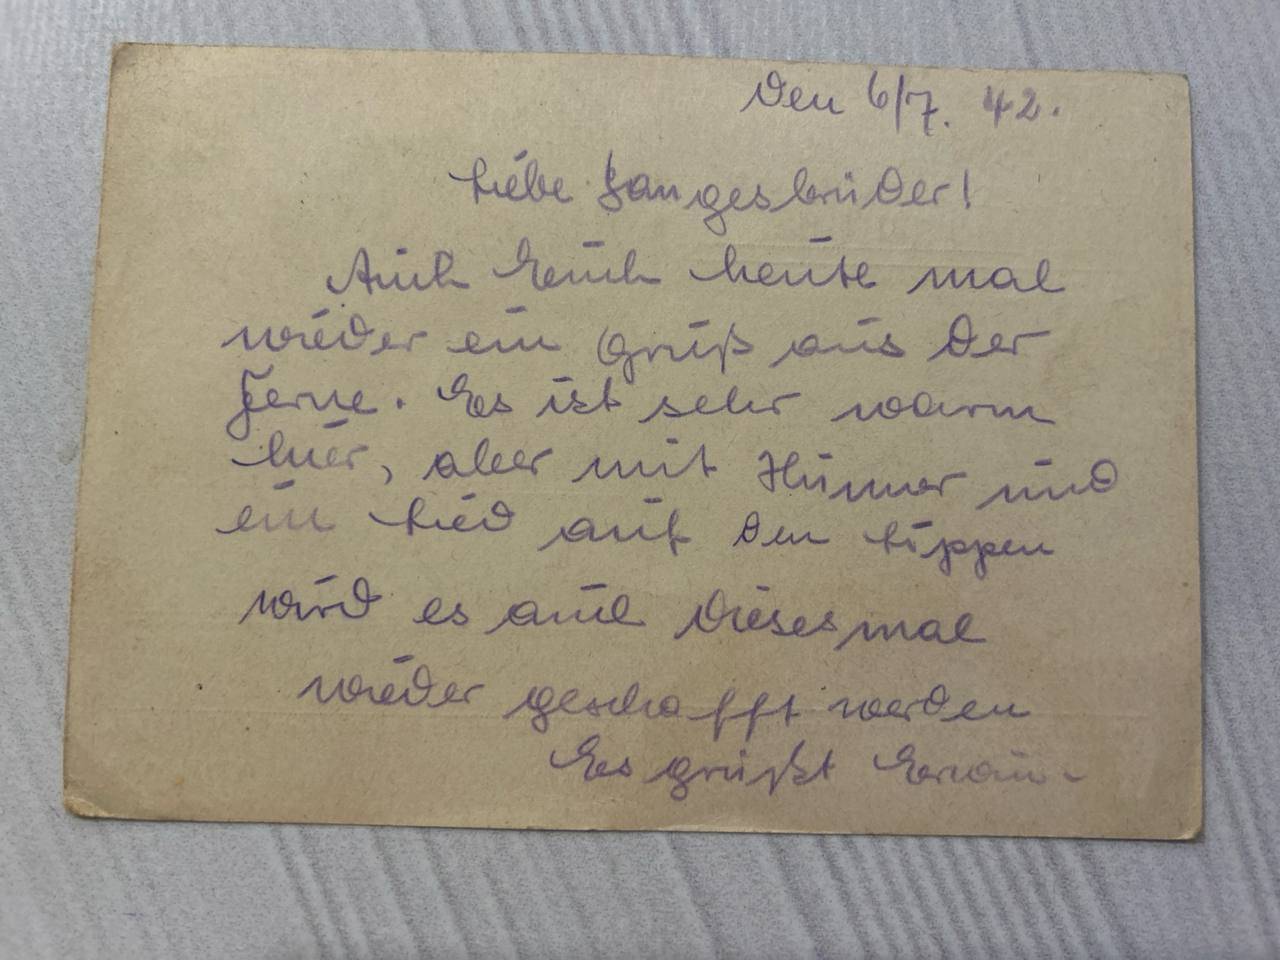 Den 6/7. 42.
Liebe Sangesbrüder!
Auch Euch heute mal
wieder ein Gruß aus der
Ferne. Es ist sehr warm
hier, aber mit Humor und
ein Lied auf den Lippen
wird es auch diesesmal
wieder geschafft werden
Es grüßt Erwin